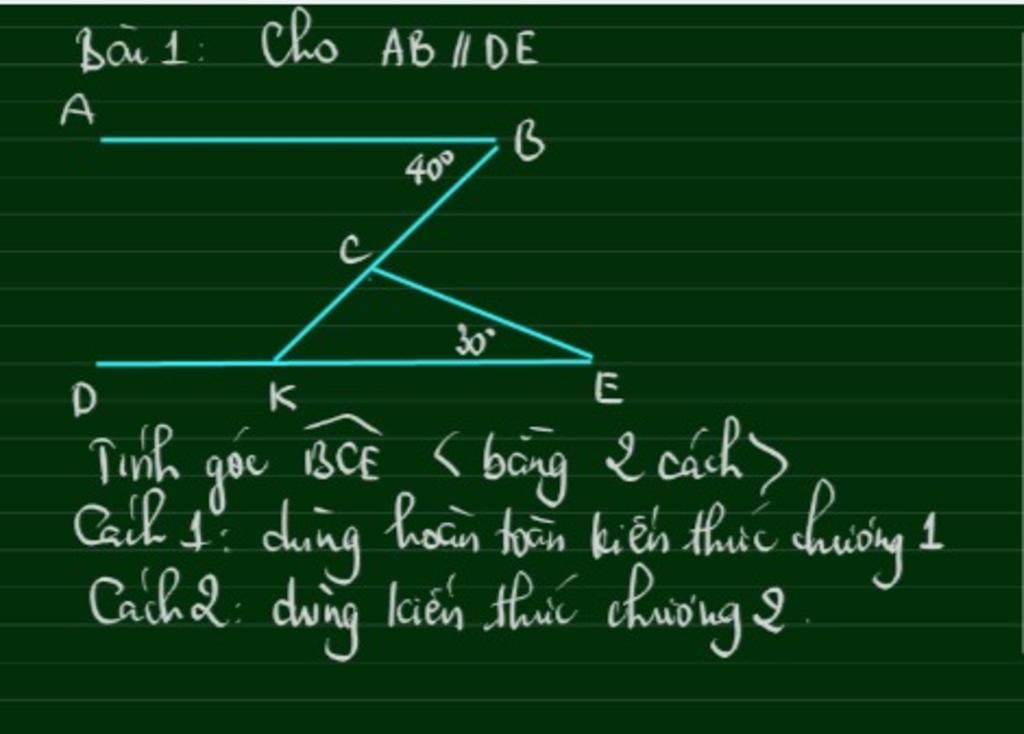 Bài 1: Cho AB // DE
A
B
40°
C
30°
D
K
E
Tính góc BCE < bằng 2 cách >
Cách 1: dùng hoàn toàn kiến thức chương 1
Cách 2: dùng kiến thức chương 2.